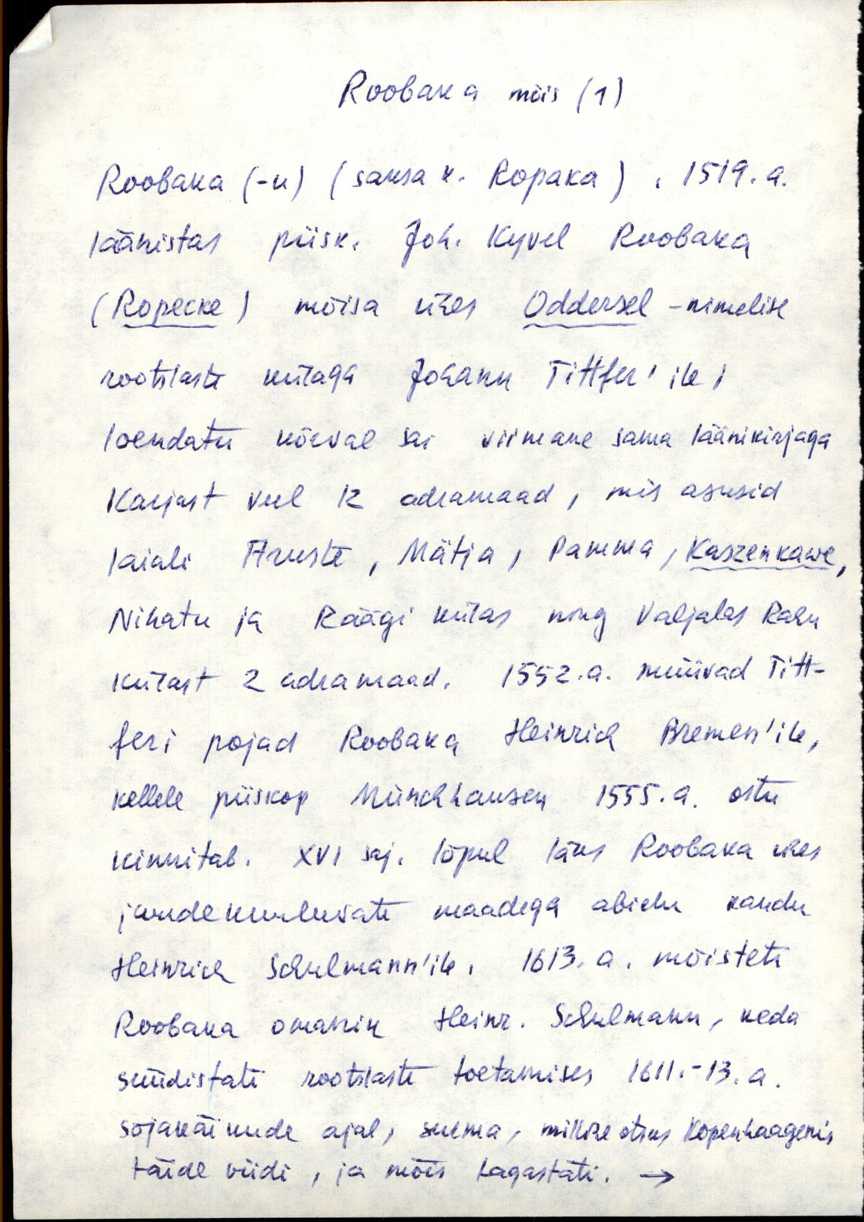 Roobaka mõis (1)
Roobaka (-u) (saksa k. Ropaka). 1519. a.
läänistas piisk. Joh. Kyvel Roobaka
(Ropecke) mõisa ühes Oddersel -nimelise
rootslaste külaga Johann Tittfer'ile;
loendatu kõrval sai viimane sama läänikirjaga
Karjast veel 12 adramaad, mis asusid
laiali Aruste, Mätja, Pamma, Kaszenkawe,
Nihatu ja Räägi külas ning Valjalas Rahu
külast 2 adramaad. 1552. a. müüvad Titt-
feri pojad Roobaka Heinrich Bremen'ile,
kellele piiskop Münchhausen 1555. a. ostu
kinnitab. XVI saj. lõpul läks Roobaka ühes
juurdekuuluvate maadega abielu kaudu
Heinrich Schulmann'ile. 1613. a. mõisteti
Roobaka omanik Heinr. Schulmann, keda
süüdistati rootslaste toetamises 1611.-13. a.
sõjakäikude ajal, surma, milline otsus Kopenhaagenis
täide viidi, ja mõis tagastati. →